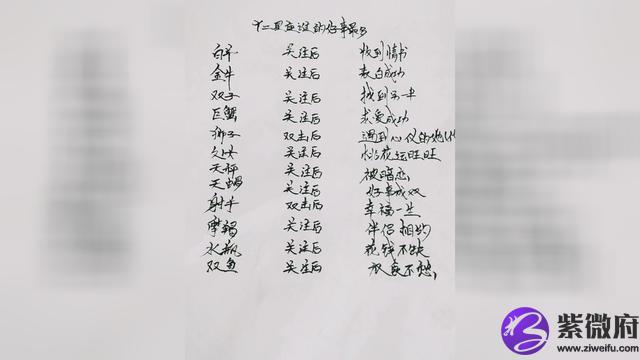 十二星座的好事
白羊 关注后 收到情书
金牛 关注后 表白成功
双子 关注后 找到另一半
巨蟹 关注后 求爱成功
狮子 双击后 遇到心仪的他
处女 关注后 桃花运旺旺
天秤 关注后 被暗恋
天蝎 关注后 好事成双
射手 双击后 幸福一生
摩羯 关注后 伴侣相约
水瓶 关注后 花钱不缺
双鱼 关注后 衣食不愁
紫微府
www.ziweifu.com